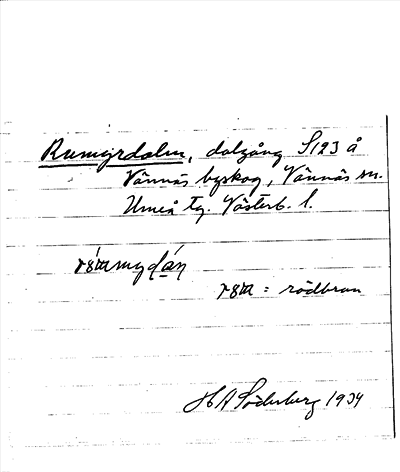 Rumyrdalen, dalgång S123 å
Vännäs byskog, Vännäs sn.
Umeå tg. Västerb. l.
: rödbrun
H A Söderberg 1934